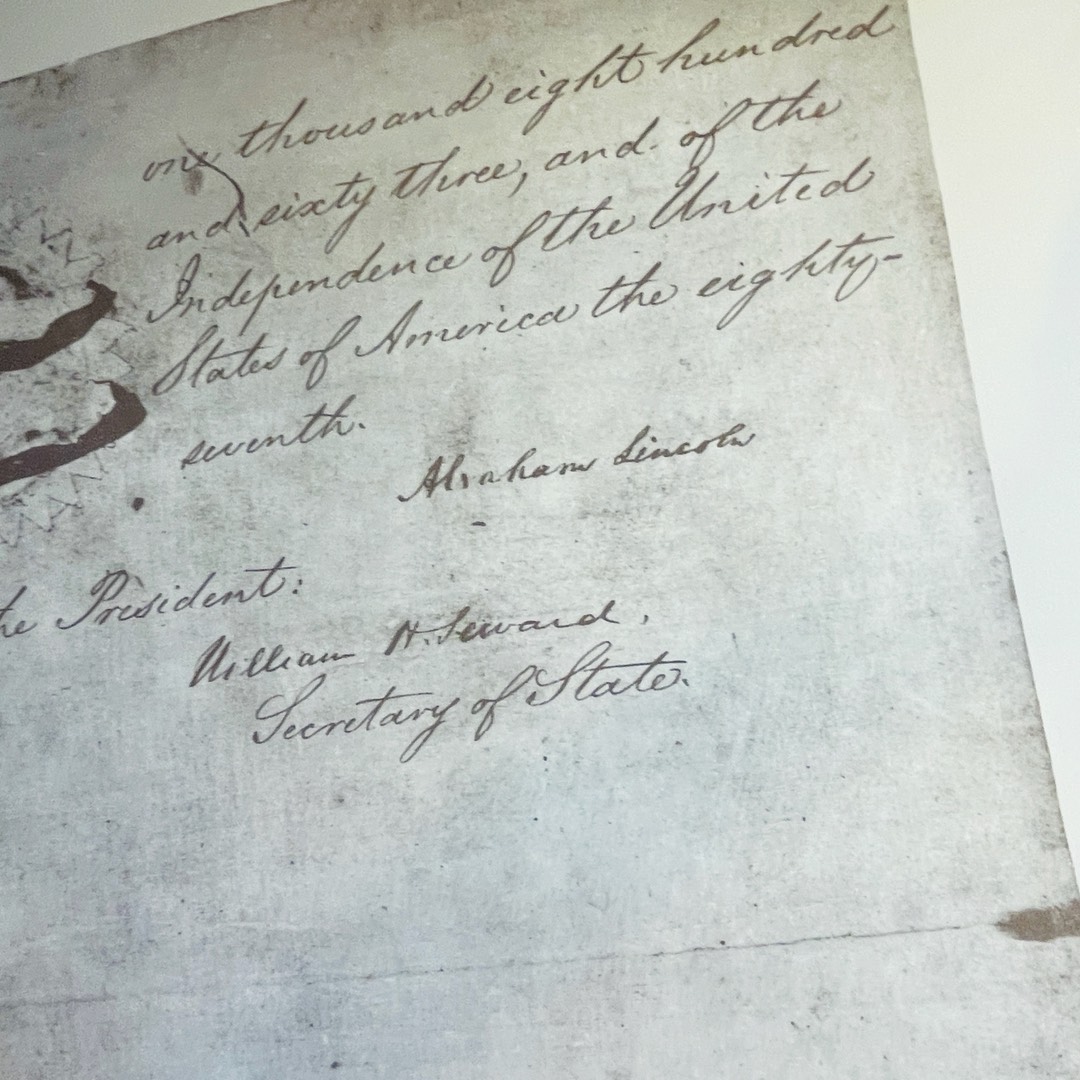 one thousand eight hundred
and sixty three, and of the
Independence of the United
States of America the eighty-
seventh.
Abraham Lincoln
the President:
William H. Seward,
Secretary of State.